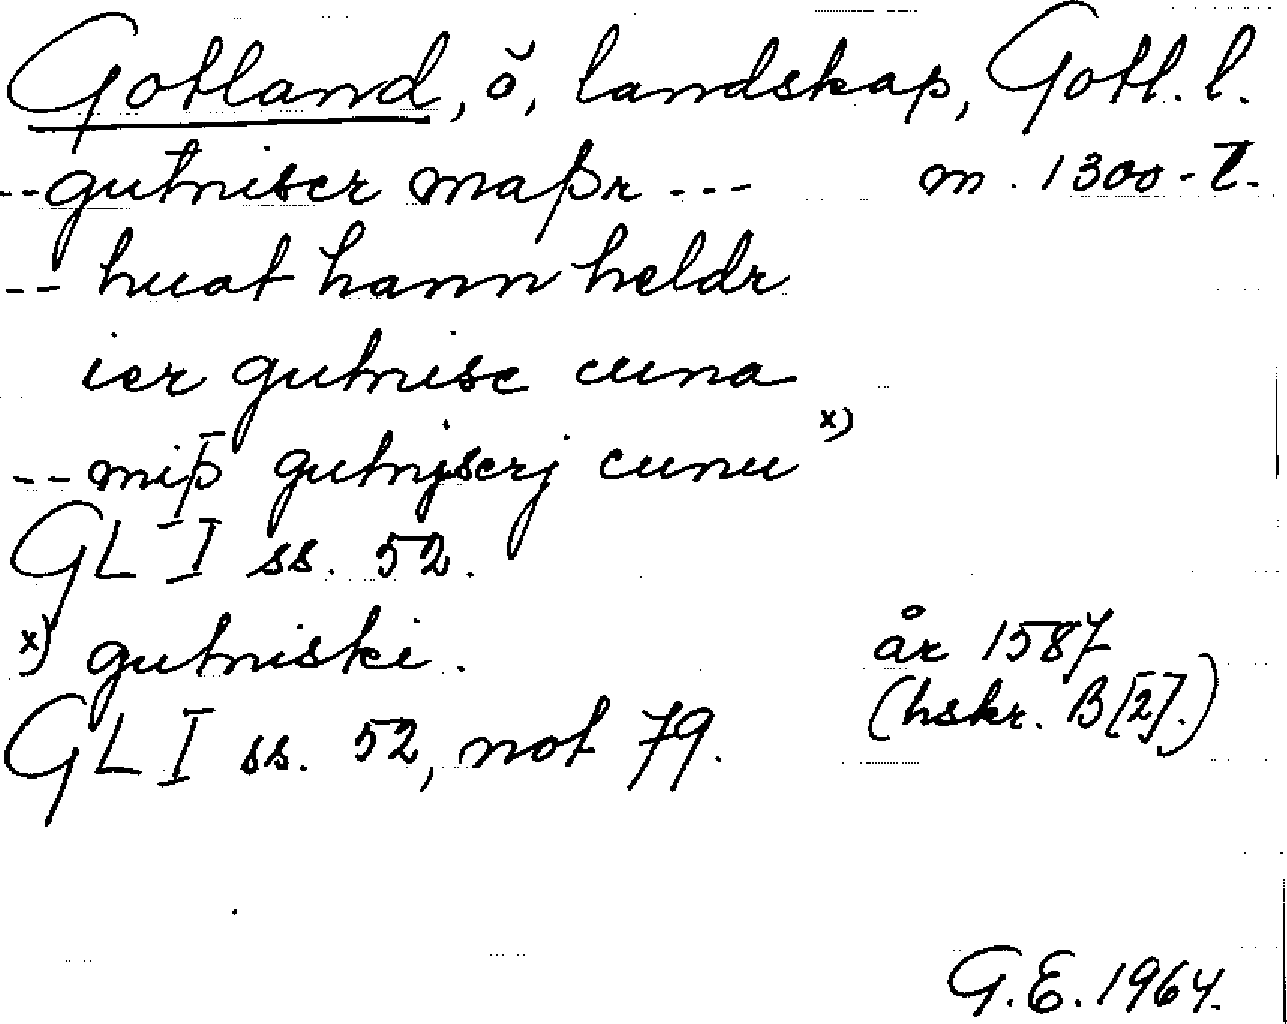 Gotland, ö, landskap, Gotl. l.
--gutniscr maþr --- m. 1300-t.
-- huat hann heldr
ier gutnisc cuna
-- miþ gutnjscrj cunu x)
GL I ss. 52.
x) gutniski. år 1587
(hskr. B[2].)
GL I ss. 52, not 79.
G.E. 1964.